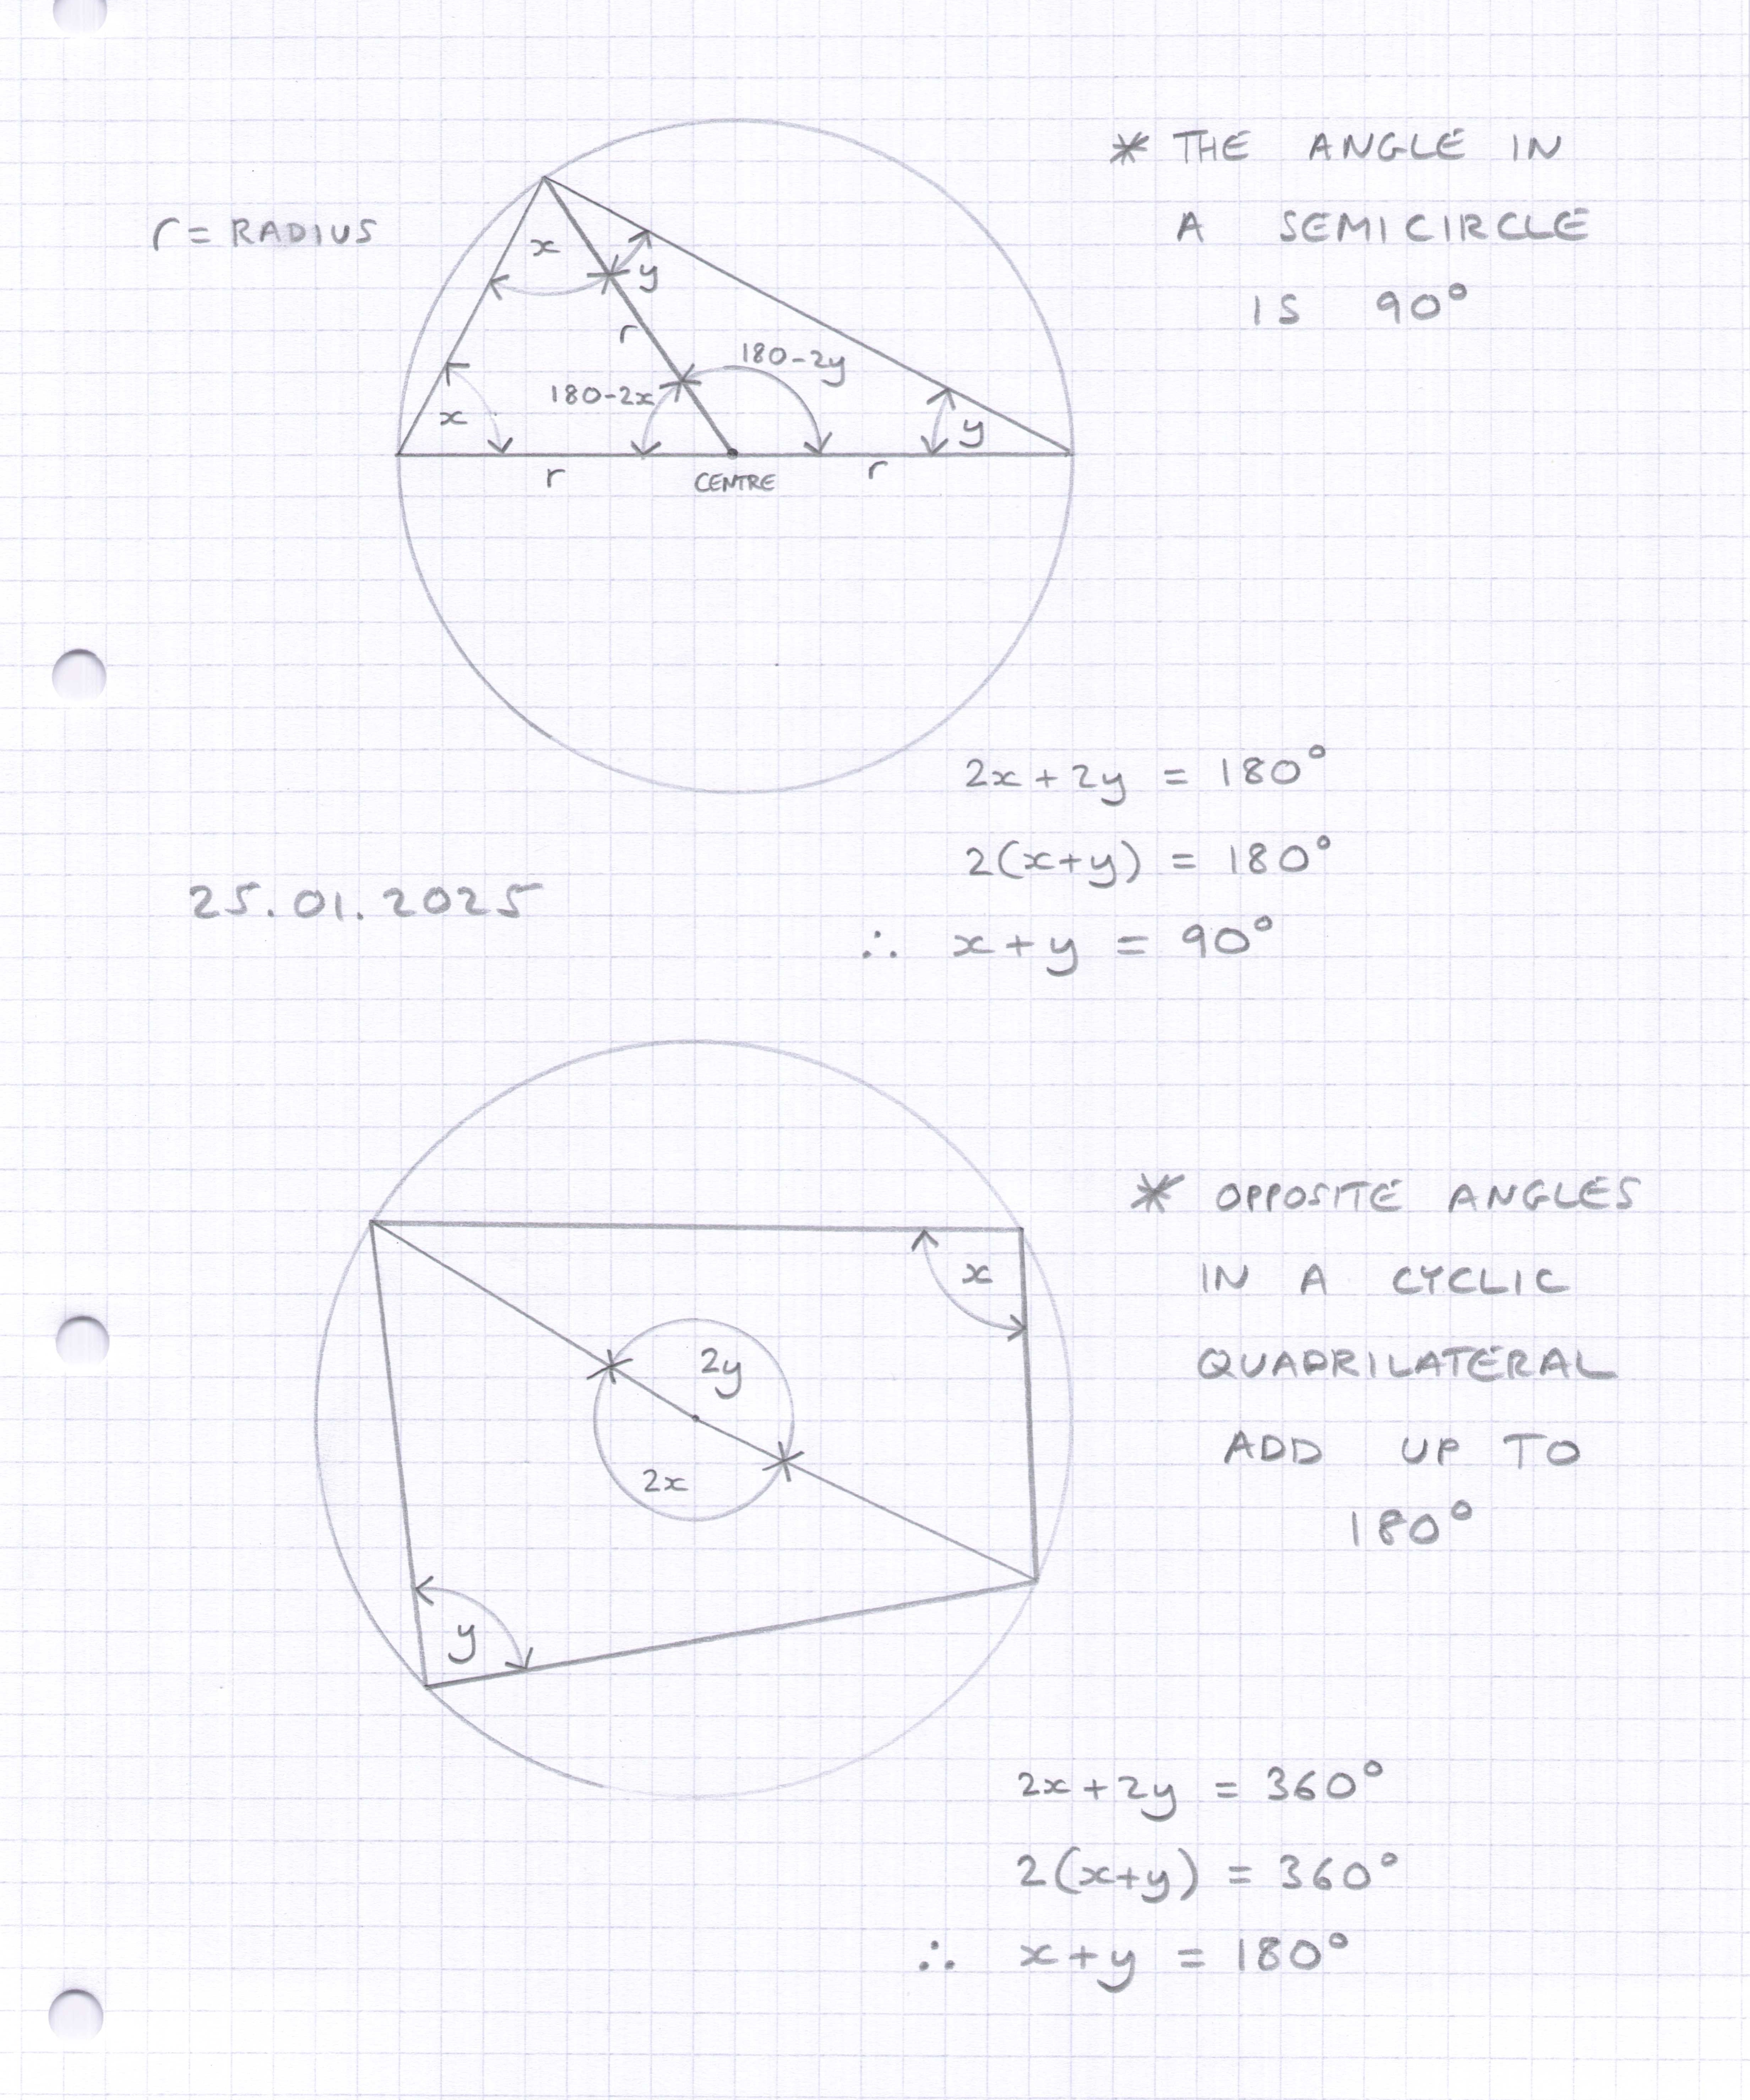 * THE ANGLE IN
A SEMICIRCLE
IS 90°
r = RADIUS
x
y
r
180-2y
180-2x
x
y
r
r
CENTRE
2x + 2y = 180°
2(x+y) = 180°
25.01.2025
∴ x + y = 90°
* OPPOSITE ANGLES
IN A CYCLIC
QUADRILATERAL
ADD UP TO
180°
x
2y
2x
y
2x + 2y = 360°
2(x+y) = 360°
∴ x + y = 180°